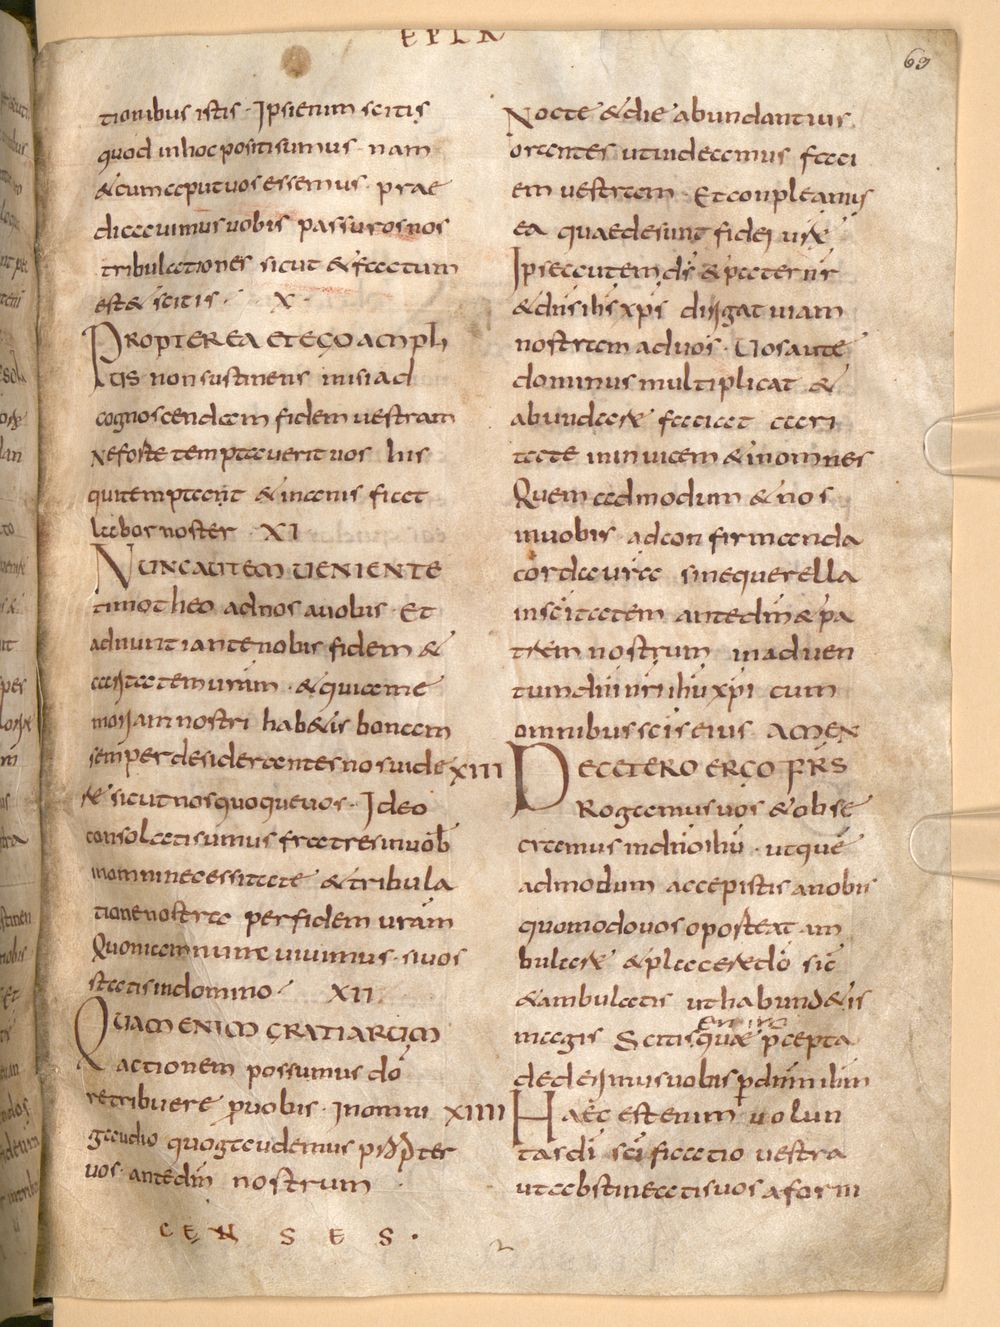 EPLA
69
tionibus istis · Ipsi enim scitis
quod inhoc positi sumus · nam
& cum aput uos essemus · prae
dicauimus uobis passuros nos
tribulationes sicut & factum
est & scitis · X ·
PROPTEREA ET EGO AMPLI
US non sustinens misi ad
cognoscendam fidem uestram
Ne forte temptauerit uos his
qui temptant & inanis fiat
labor noster · XI
NUNC AUTEM UENIENTE
timotheo ad nos a uobis · Et
adnuntiante nobis fidem &
caritatem uram · & quia me
moriam nostri hab&is bonam
semper desiderantes nos uide
re sicut nos quoque uos · Ideo
consolati sumus fratres in uob
in omni necessitate & tribula
tione nostra per fidem uram
Quoniam nunc uiuimus · si uos
statis in domino · XII
QUAM ENIM GRATIARUM
actionem possumus do
retribuere p uobis · In omni
gaudio quo gaudemus propter
uos · ante dm nostrum
CENSES ·
Nocte & die abundantius
orantes ut uideamus faci
em uestram · Et conpleamus
ea quae desunt fidei urae
Ipse autem ds & pater nr
& dns ihs xps dirigat uiam
nostram ad uos · Uos aute
dominus multiplicat &
abundare faciat cari
tate in inuicem & in omnes
Quem admodum & nos
in uobis ad confirmanda
corda ura sine querella
in scitatem ante dm & pa
trem nostrum in aduen
tum dni nri ihu xpi cum
omnibus scis eius AMEN
XIII DE CETERO ERGO FRS
Rogamus uos & obse
cramus in dno ihu · ut que
admodum accepistis a nobis
quomodo uos oporteat am
bulare & placere do sic
& ambulatis ut habund&is
magis Scitis enim quae pcepta
dederimus uobis p dnm ihm
XIIII HAEC est enim uolun
tas di scificatio uestra
ut abstineatis uos a forni